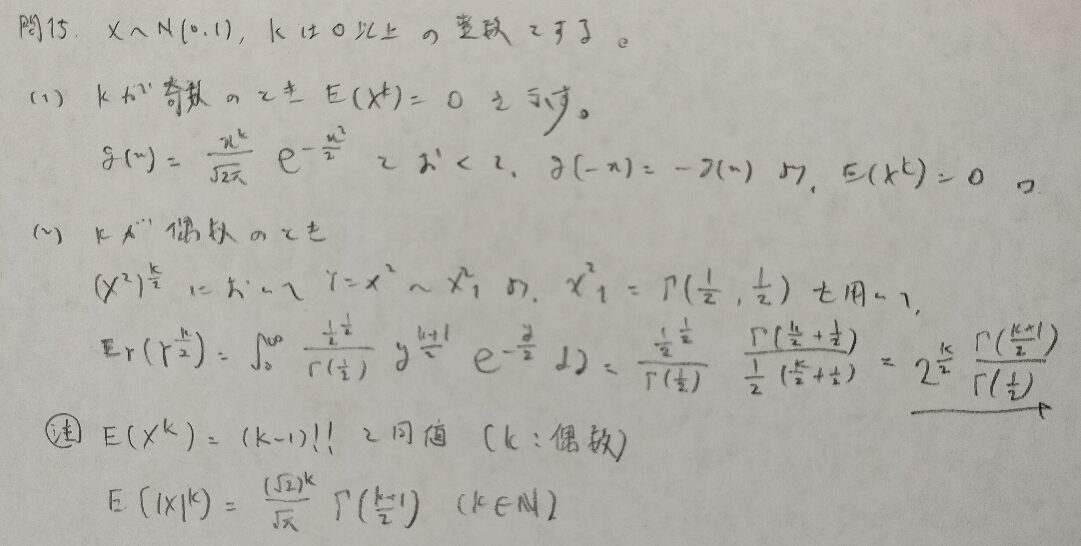 問15. X~N(0,1), kは0以上の整数とする。
(1) kが奇数のとき E(X^k)=0 を示す。
g(x)= x^k/√2π e^{-x²/2} とおくと、g(-x)=-g(x) より、E(X^k)=0 □
(2) kが偶数のとき
(X²)^{k/2} において Y=X²~χ²₁ より、χ²₁=Γ(1/2, 1/2) を用いて、
E_Y(Y^{k/2})=∫₀^∞ (1/2)^{1/2}/Γ(1/2) y^{(k+1)/2} e^{-y/2} dy = (1/2)^{1/2}/Γ(1/2) Γ(k/2+1/2)/(1/2)^{(k/2+1/2)} = 2^{k/2} Γ((k+1)/2)/Γ(1/2)
注 E(X^k)=(k-1)!! と同値 (k:偶数)
E(|X|^k)= (√2)^k/√π Γ((k+1)/2) (k∈N)